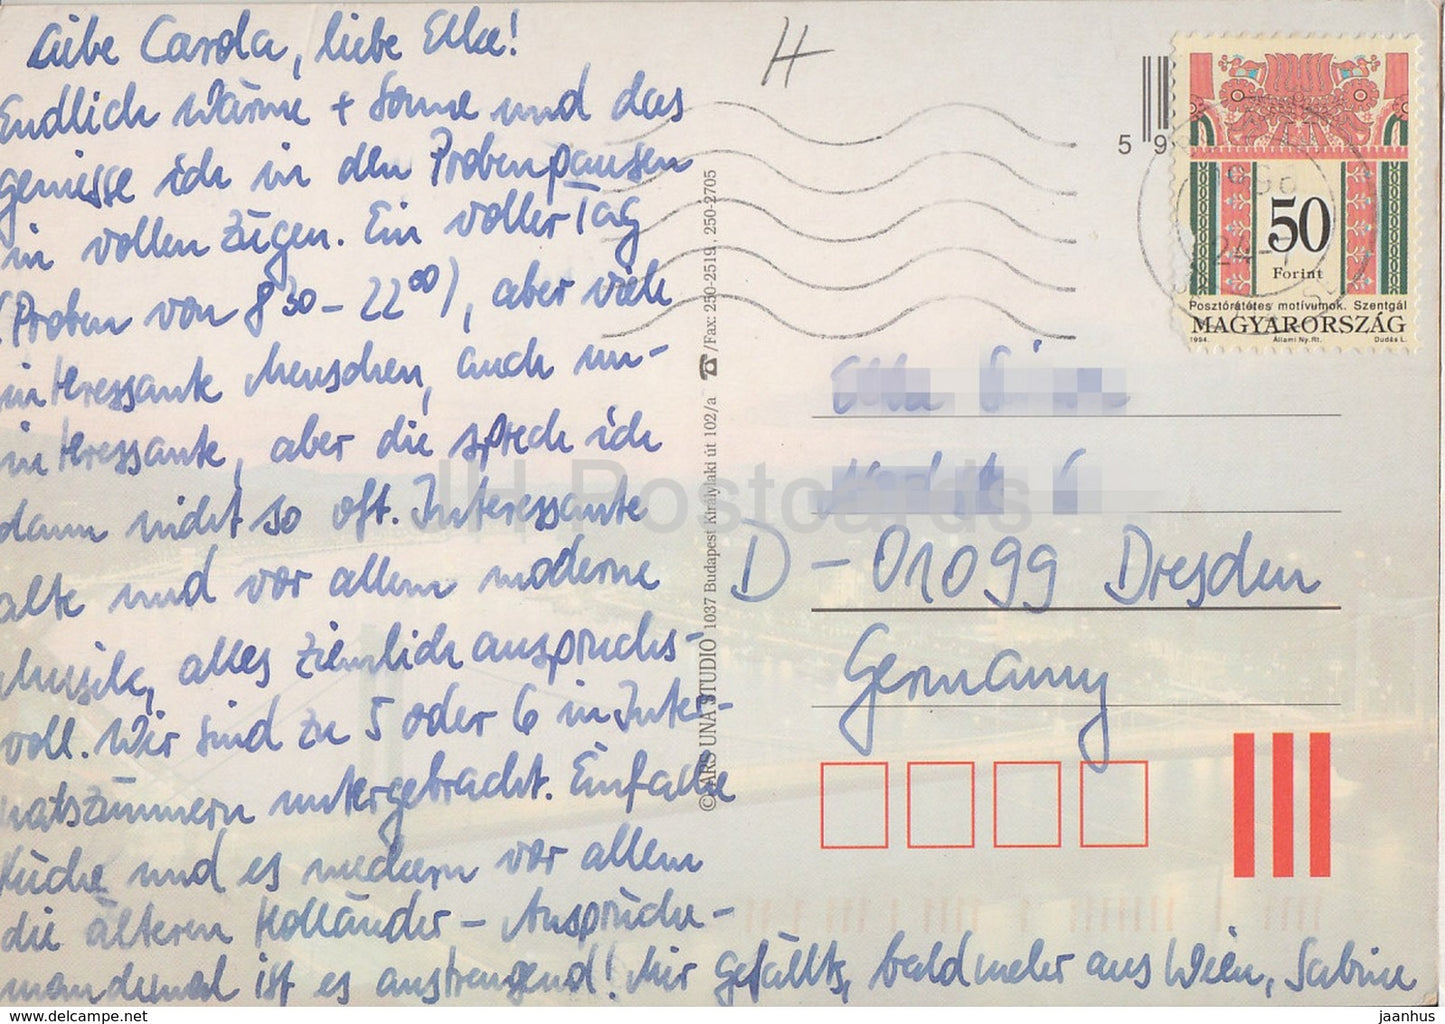 Liebe Carola, liebe Elke!
Endlich Wärme + Sonne und das
geniesse ich in den Probenpausen
in vollen Zügen. Ein voller Tag
(Proben von 8 30 – 22 00), aber viele
interessante Menschen, auch un-
interessante, aber die sprech ich
dann nicht so oft. Interessante
alte und vor allem moderne
Musik, alles ziemlich anspruchs-
voll. Wir sind zu 5 oder 6 in Inter-
natszimmern untergebracht. Einfache
Küche und es meckern vor allem
die älteren Holländer – Ansprüche –
manchmal ist es anstrengend! Mir gefällts, bald mehr aus Wien, Sabine
H
5 9
50
Forint
Posztórátétes motívumok. Szentgál
MAGYARORSZÁG
1994. Állami Ny. Rt. Dudás L.
24
© ARS UNA STUDIO 1037 Budapest Királylaki út 102/a ☎/Fax: 250-2519, 250-2705
Elke
D – 01099 Dresden
Germany
JH Postcards
https://www.delcampe.net/en_US/store
jaanhus